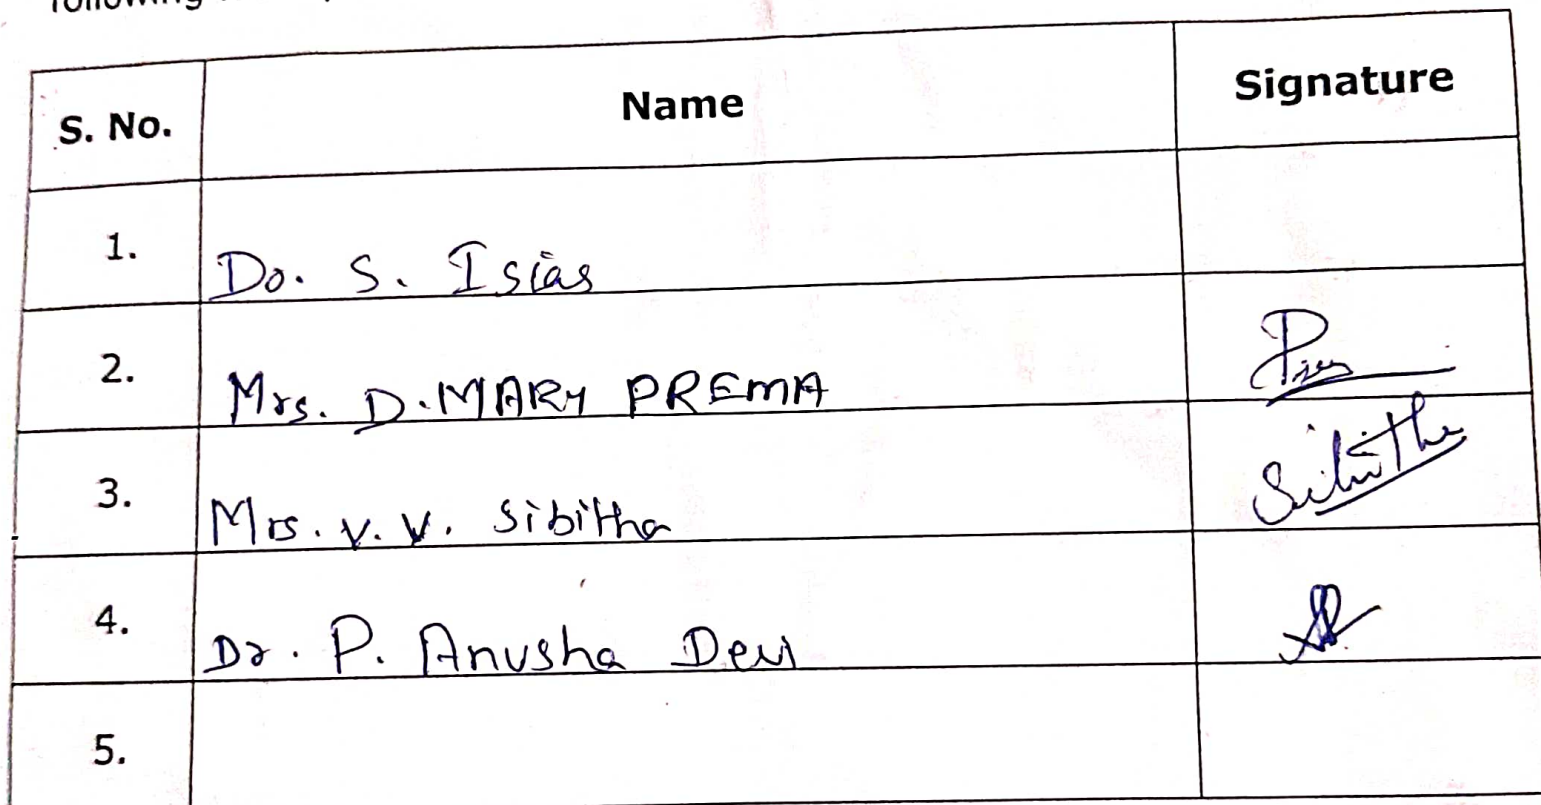 following
S. No. Name Signature
1. Dr. S. Isias
2. Mrs. D. MARY PREMA
3. Mrs. V. V. Sibitha Sibitha
4. Dr. P. Anusha Devi
5.